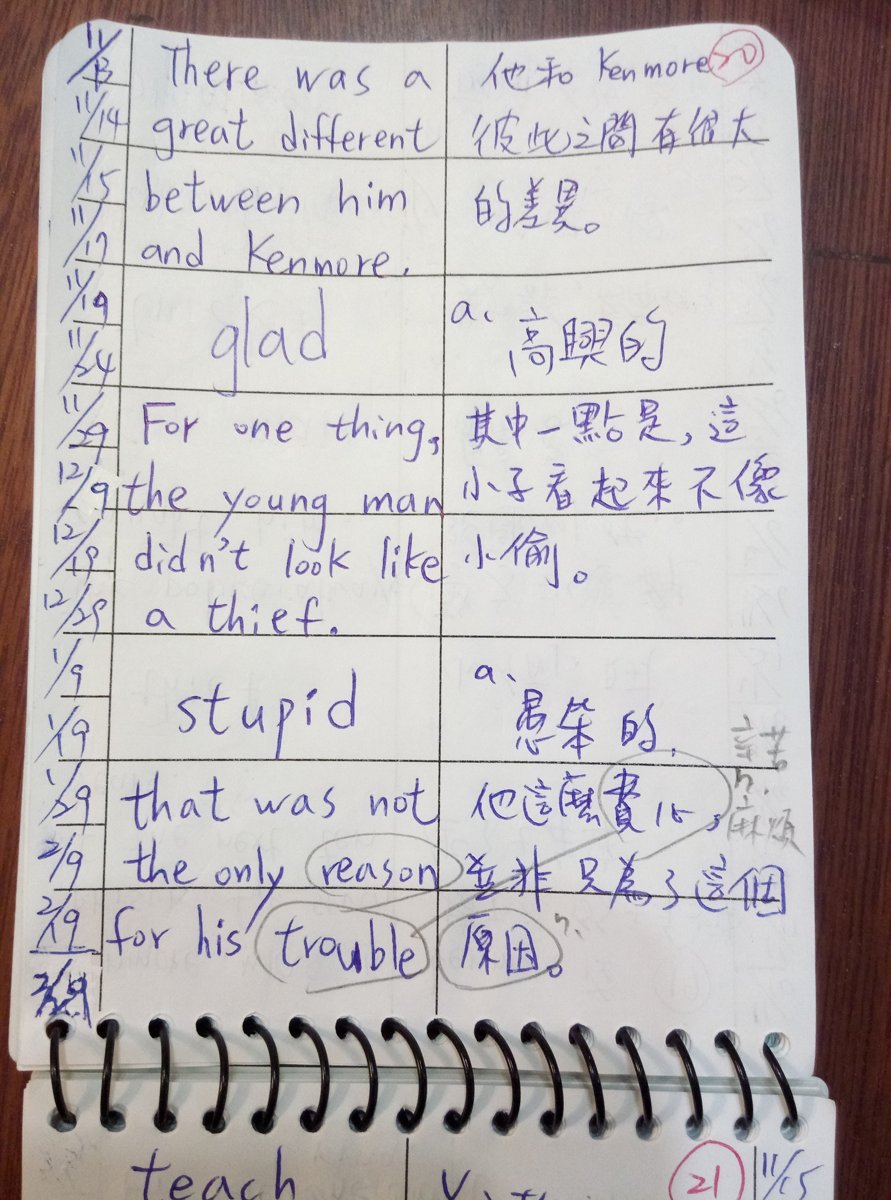 11/13 There was a 他和 Kenmore 20
11/14 great different 彼此之間有很大
11/15 between him 的差異。
11/17 and Kenmore.
11/19 glad a. 高興的
11/24
11/29 For one thing, 其中一點是，這
12/9 the young man 小子看起來不像
12/19 didn't look like 小偷。
12/29 a thief.
1/9 stupid a. 愚笨的.
1/19
1/29 that was not 他這麼費心，
n. 麻煩
2/9 the only reason 並非只為了這個
2/19 for his trouble 原因。 n.
teach v. 21 11/15